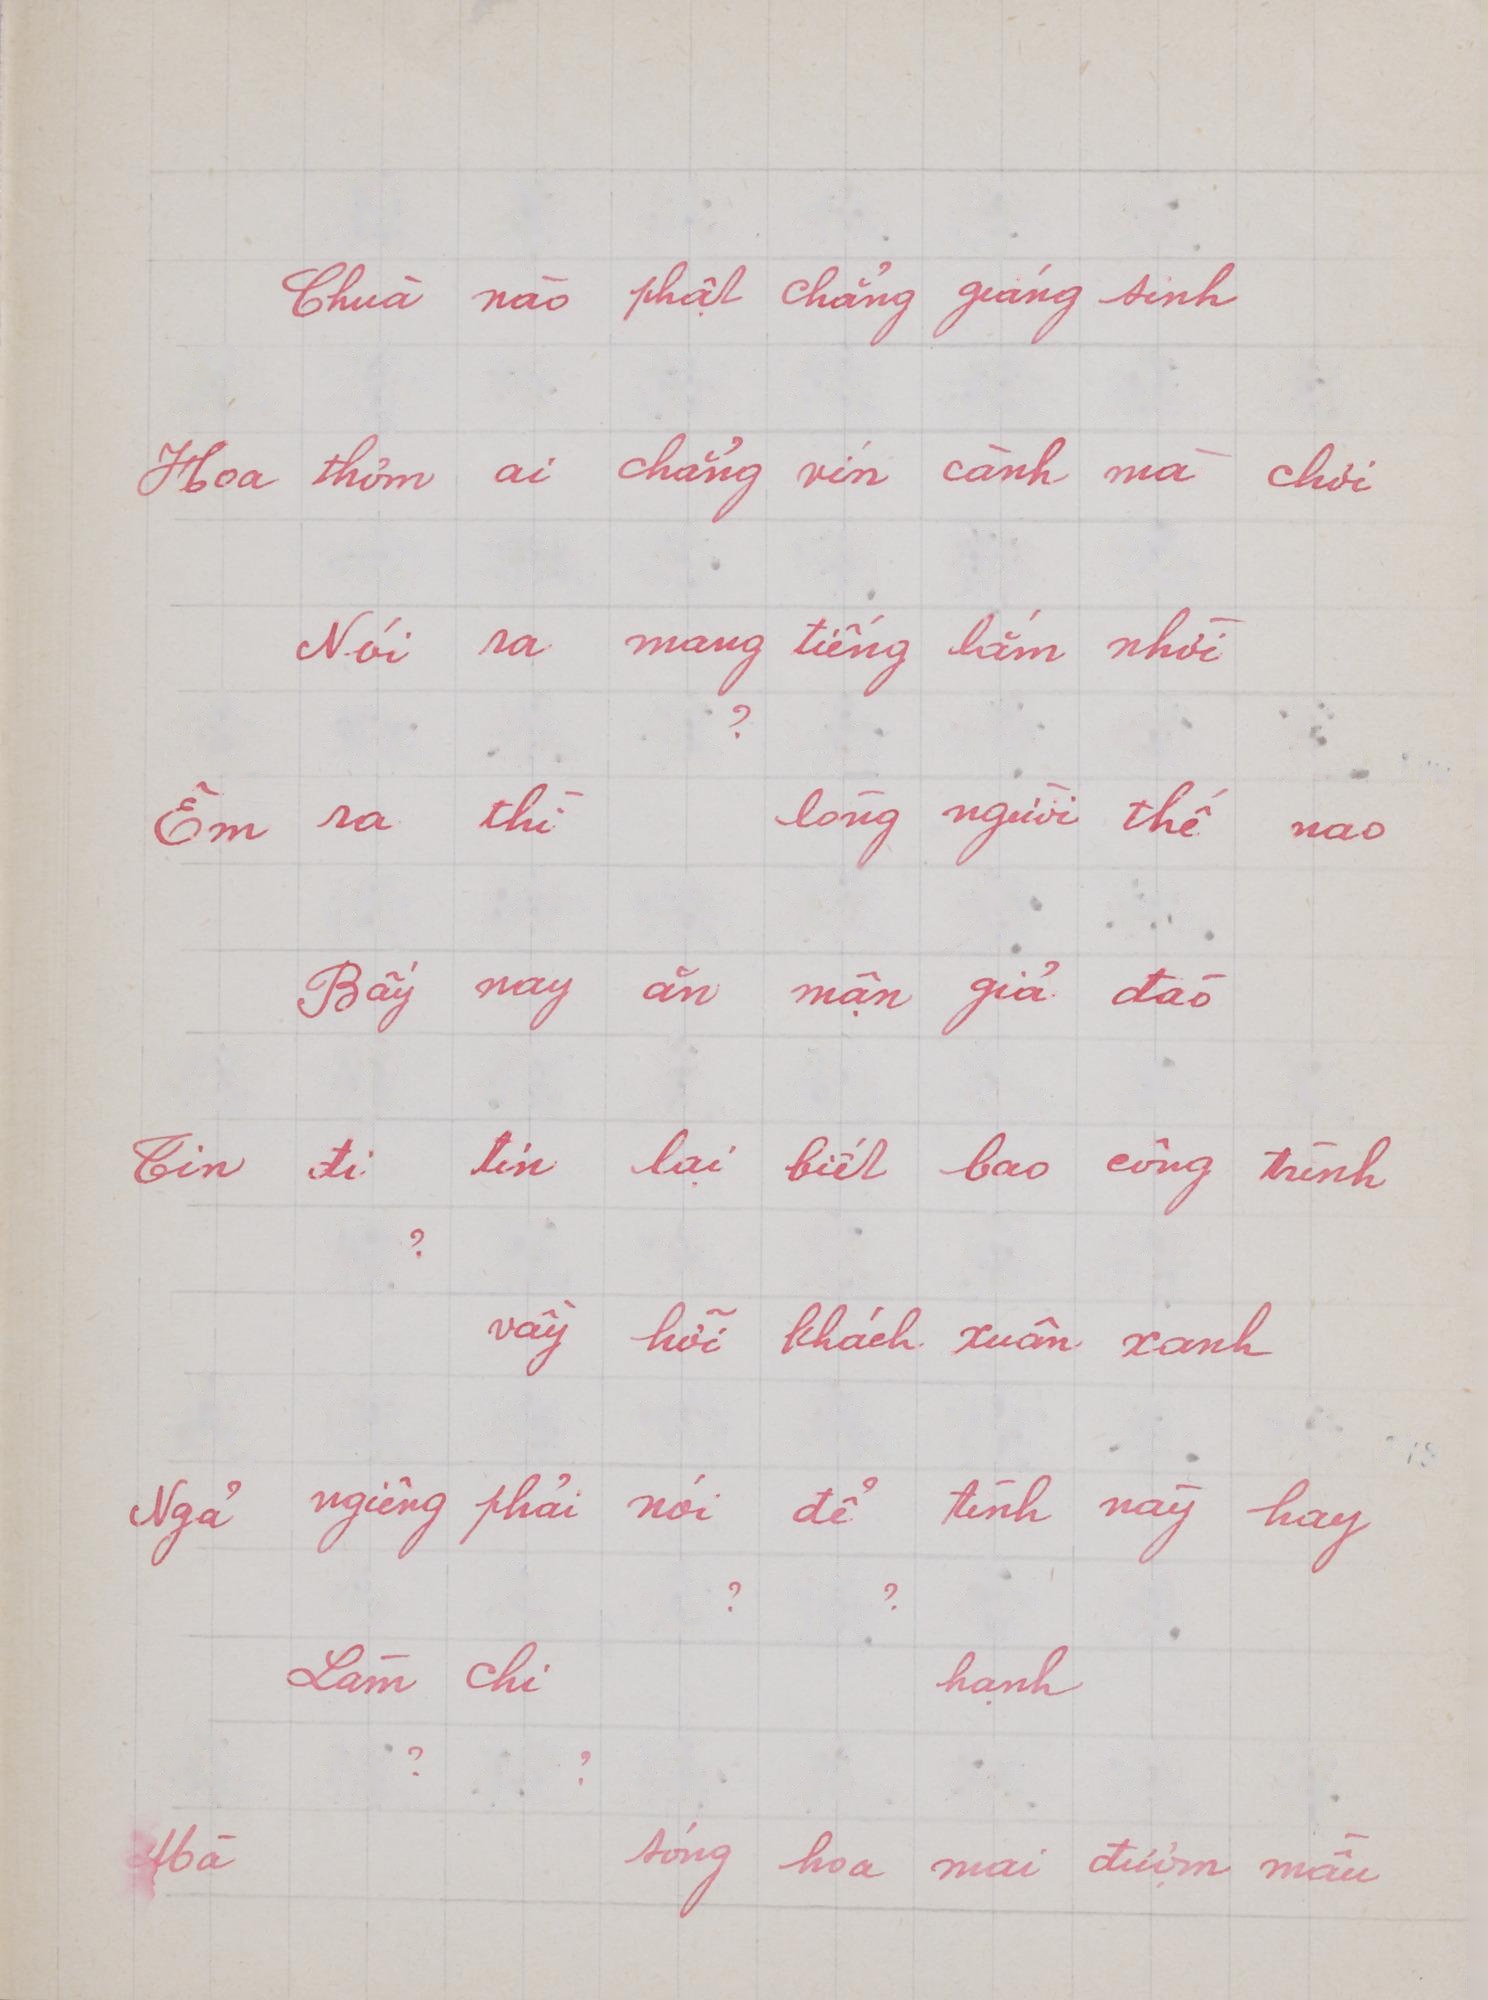 Chuà nào phật chẳng giáng sinh
Hoa thơm ai chẳng vin cành mà chơi
Nói ra mang tiếng lắm nhời
?
Êm ra thì lòng người thế nao
Bấy nay ăn mận giả đào
Tin đi tin lại biết bao công trình
?
vầy hỡi khách xuân xanh
Ngả ngiêng phải nói để tình này hay
? ?
Làm chi hạnh
? ?
Hà sóng hoa mai đượm mầu